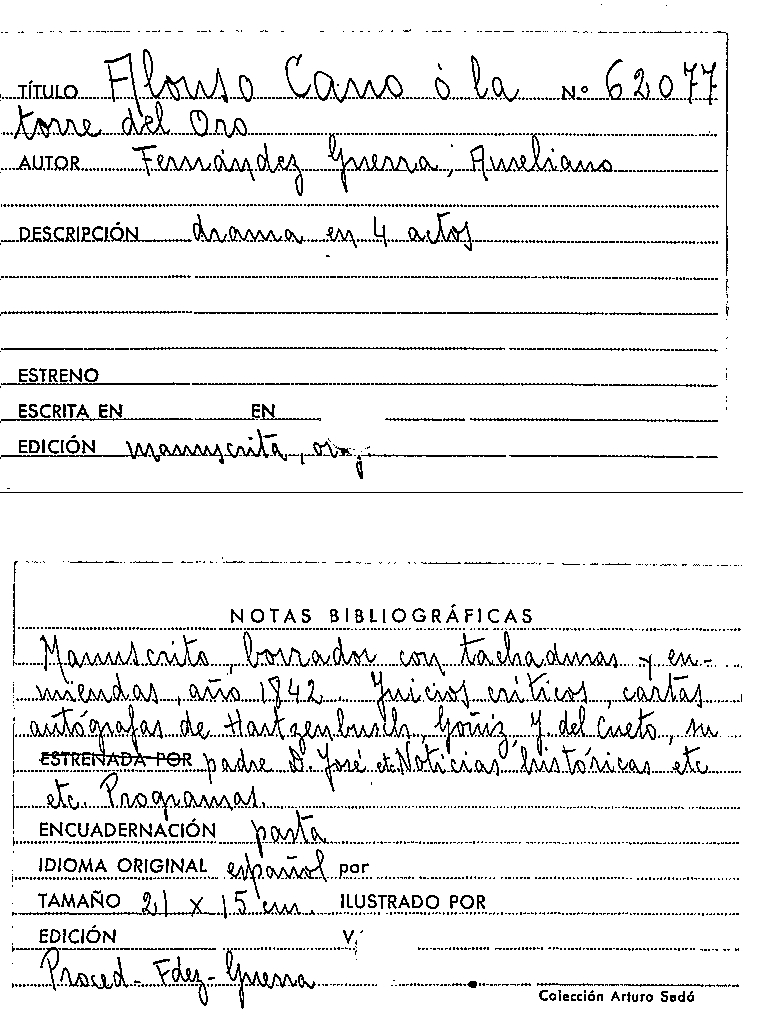 TÍTULO Alonso Cano ó la Nº 62077
torre del Oro
AUTOR Fernández Guerra, Aureliano
DESCRIPCIÓN drama en 4 actos
ESTRENO
ESCRITA EN EN
EDICIÓN manuscrita,
NOTAS BIBLIOGRÁFICAS
Manuscrito, borrador con tachaduras y en-
miendas, año 1842. Juicios críticos, cartas
autógrafas de Hartzenbusch, Goñiz, y del Cueto, su
ESTRENADA POR padre D. José etc Noticias históricas etc
etc. Programas.
ENCUADERNACIÓN pasta
IDIOMA ORIGINAL español por
TAMAÑO 21 x 15 cm. ILUSTRADO POR
EDICIÓN V.
Proced- Fdez- Guerra
Colección Arturo Sedó